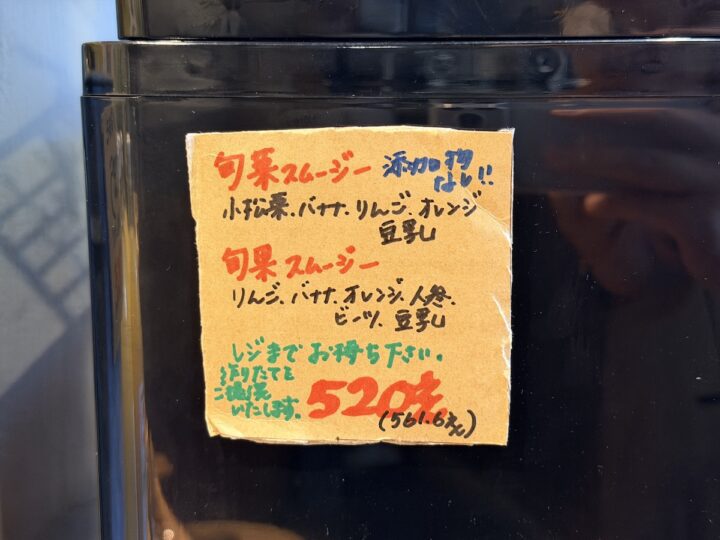 旬菜スムージー 添加物
なし!!
小松菜、バナナ、りんご、オレンジ
豆乳
旬果スムージー
りんご、バナナ、オレンジ、人参、
ビーツ、豆乳
レジまでお持ち下さい。
作りたてを
ご提供
いたします。
520え
(561.6え)